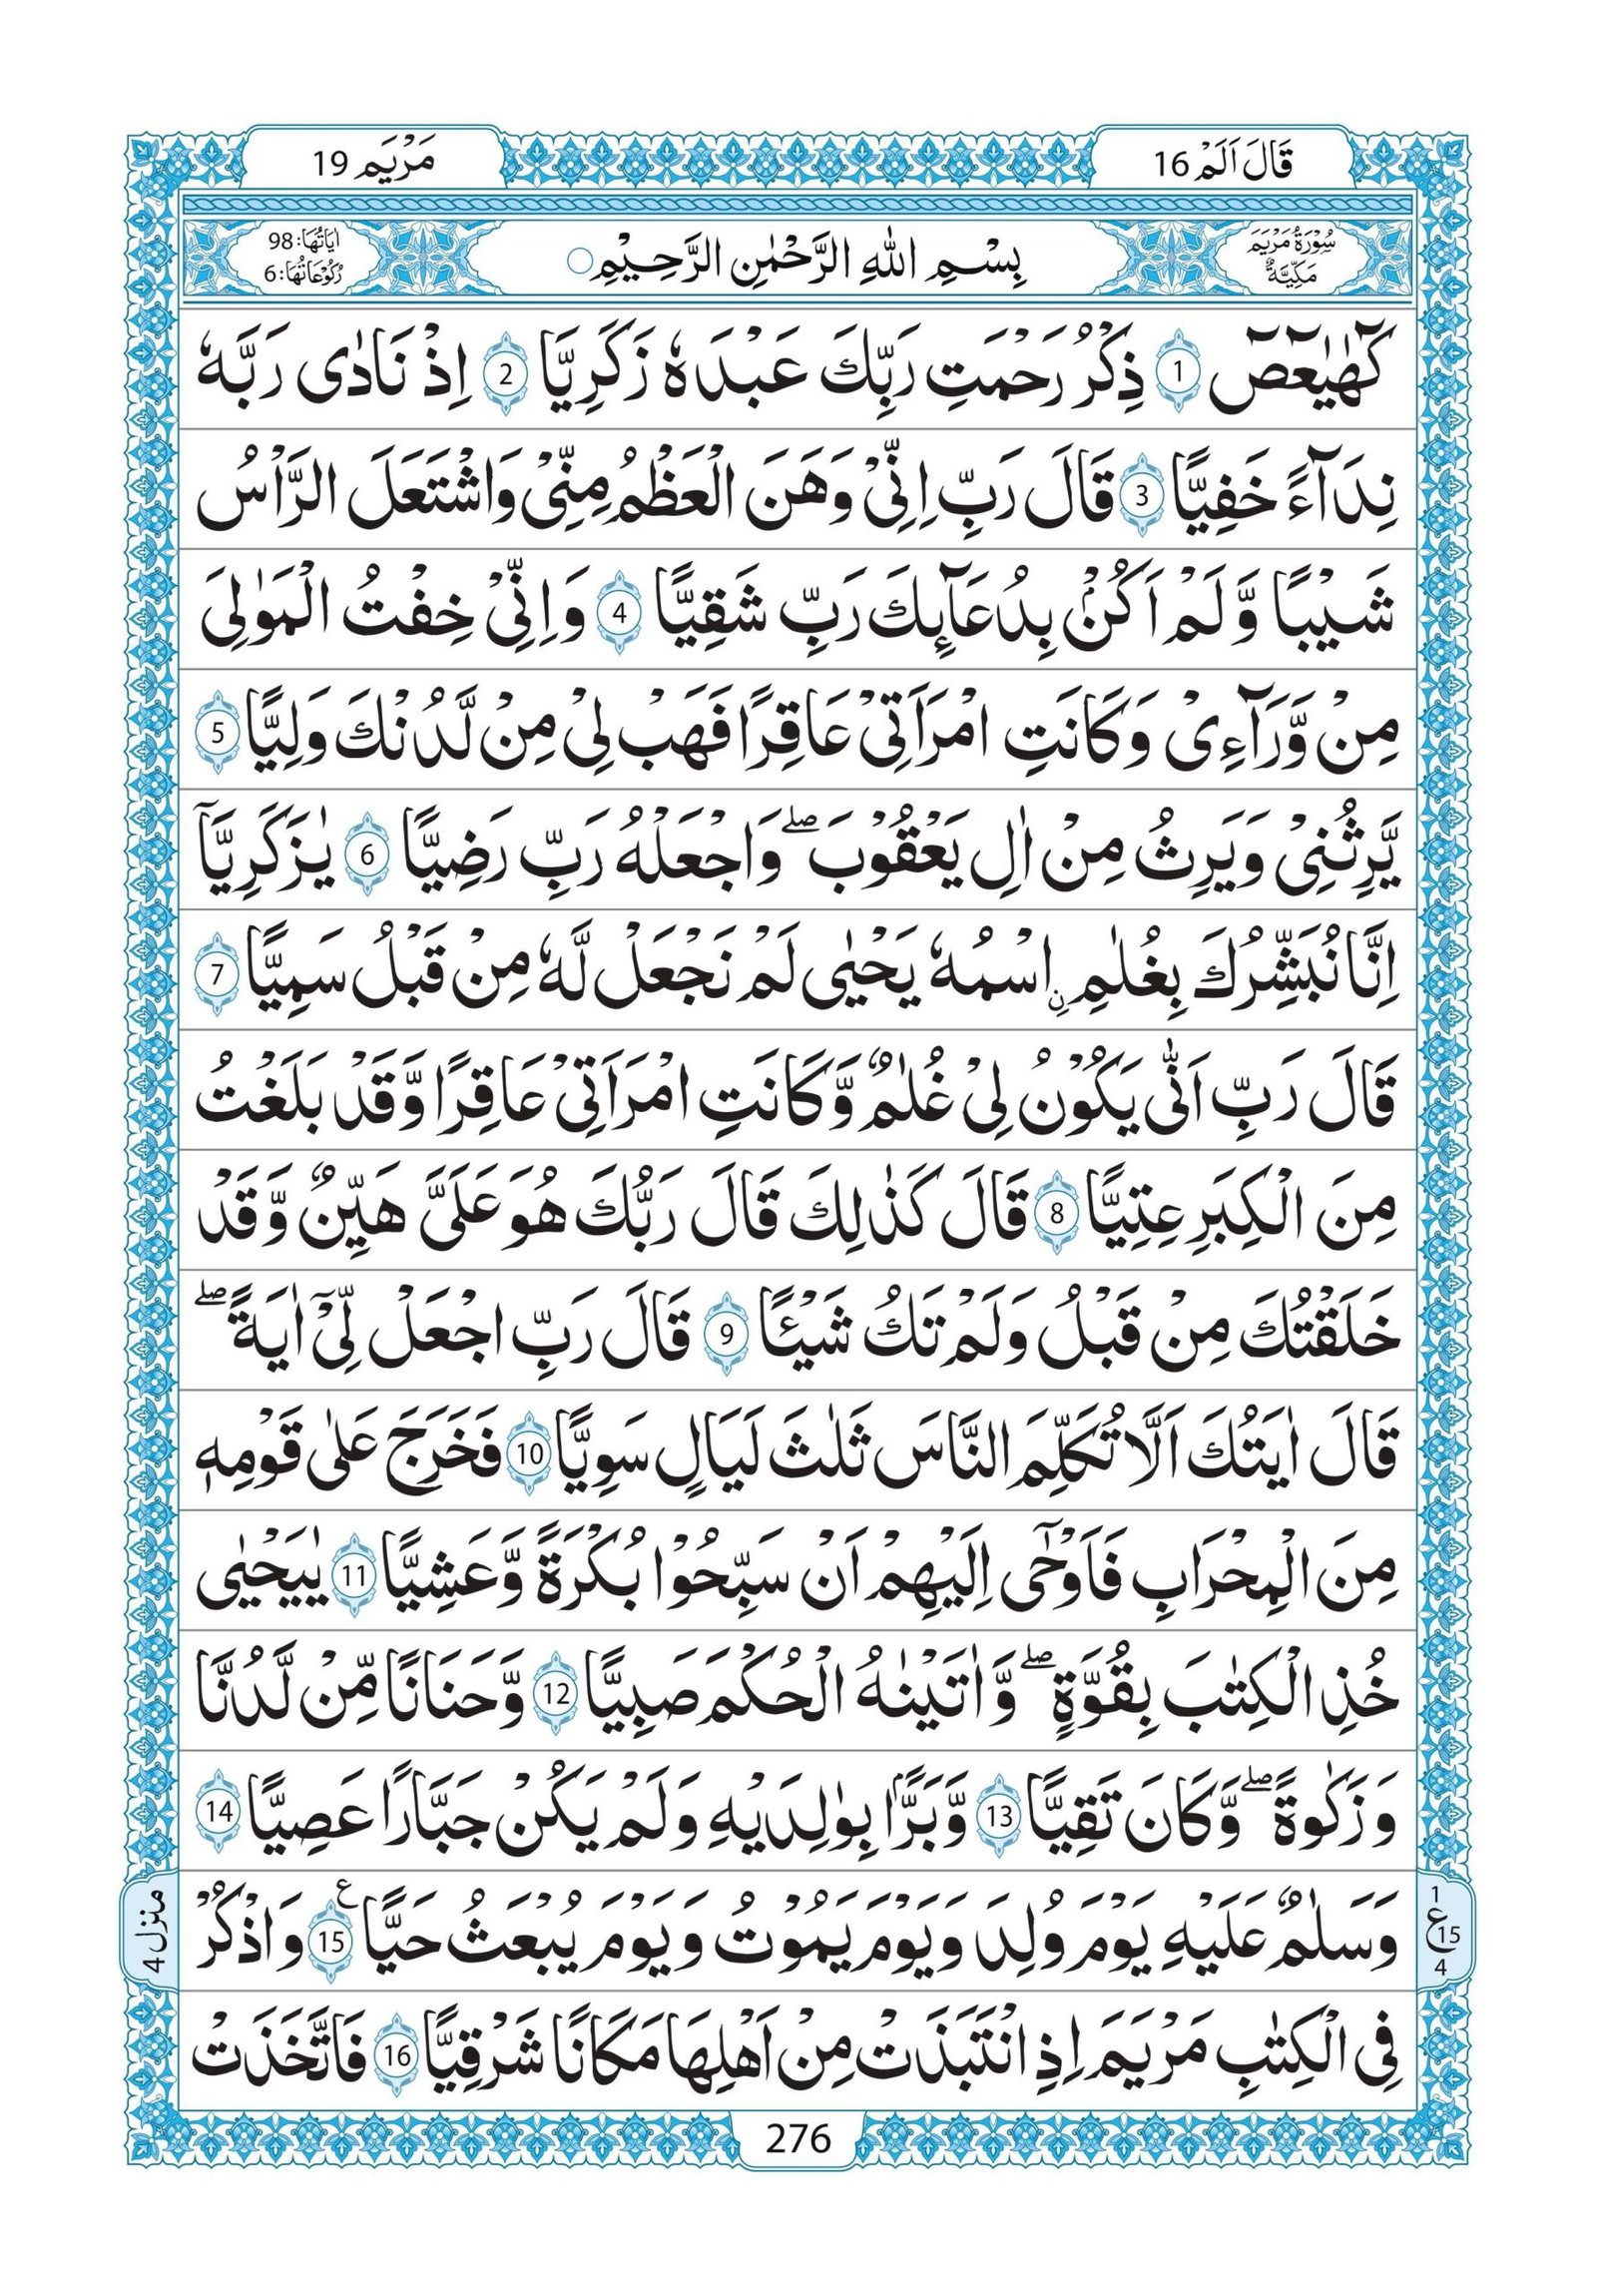 قَالَ اَلَمْ 16
مَرْيَم 19
سُوْرَةُ مَرْيَمَ
مَكِّيَّةٌ
بِسْمِ اللهِ الرَّحْمٰنِ الرَّحِيْمِ
اٰيَاتُهَا: 98
رُكُوْعَاتُهَا: 6
كٓهٰيٰعٓصٓ 1 ذِكْرُ رَحْمَتِ رَبِّكَ عَبْدَهٗ زَكَرِيَّا 2 اِذْ نَادٰى رَبَّهٗ
نِدَآءً خَفِيًّا 3 قَالَ رَبِّ اِنِّىْ وَهَنَ الْعَظْمُ مِنِّىْ وَاشْتَعَلَ الرَّاْسُ
شَيْبًا وَّلَمْ اَكُنْۢ بِدُعَآىِٕكَ رَبِّ شَقِيًّا 4 وَاِنِّىْ خِفْتُ الْمَوٰلِىَ
مِنْ وَّرَآءِىْ وَكَانَتِ امْرَاَتِىْ عَاقِرًا فَهَبْ لِىْ مِنْ لَّدُنْكَ وَلِيًّا 5
يَّرِثُنِىْ وَيَرِثُ مِنْ اٰلِ يَعْقُوْبَ ۖ وَاجْعَلْهُ رَبِّ رَضِيًّا 6 يٰزَكَرِيَّآ
اِنَّا نُبَشِّرُكَ بِغُلٰمِ ۨاسْمُهٗ يَحْيٰى لَمْ نَجْعَلْ لَّهٗ مِنْ قَبْلُ سَمِيًّا 7
قَالَ رَبِّ اَنّٰى يَكُوْنُ لِىْ غُلٰمٌ وَّكَانَتِ امْرَاَتِىْ عَاقِرًا وَّقَدْ بَلَغْتُ
مِنَ الْكِبَرِ عِتِيًّا 8 قَالَ كَذٰلِكَ قَالَ رَبُّكَ هُوَ عَلَىَّ هَيِّنٌ وَّقَدْ
خَلَقْتُكَ مِنْ قَبْلُ وَلَمْ تَكُ شَيْـًٔا 9 قَالَ رَبِّ اجْعَلْ لِّىْٓ اٰيَةً ۖ
قَالَ اٰيَتُكَ اَلَّا تُكَلِّمَ النَّاسَ ثَلٰثَ لَيَالٍ سَوِيًّا 10 فَخَرَجَ عَلٰى قَوْمِهٖ
مِنَ الْمِحْرَابِ فَاَوْحٰٓى اِلَيْهِمْ اَنْ سَبِّحُوْا بُكْرَةً وَّعَشِيًّا 11 يٰيَحْيٰى
خُذِ الْكِتٰبَ بِقُوَّةٍ ۖ وَّاٰتَيْنٰهُ الْحُكْمَ صَبِيًّا 12 وَّحَنَانًا مِّنْ لَّدُنَّا
وَزَكٰوةً ۖ وَّكَانَ تَقِيًّا 13 وَّبَرًّۢا بِوٰلِدَيْهِ وَلَمْ يَكُنْ جَبَّارًا عَصِيًّا 14
وَسَلٰمٌ عَلَيْهِ يَوْمَ وُلِدَ وَيَوْمَ يَمُوْتُ وَيَوْمَ يُبْعَثُ حَيًّا ع 15 وَاذْكُرْ
فِى الْكِتٰبِ مَرْيَمَ اِذِ انْتَبَذَتْ مِنْ اَهْلِهَا مَكَانًا شَرْقِيًّا 16 فَاتَّخَذَتْ
1
ع 15
4
منزل 4
276